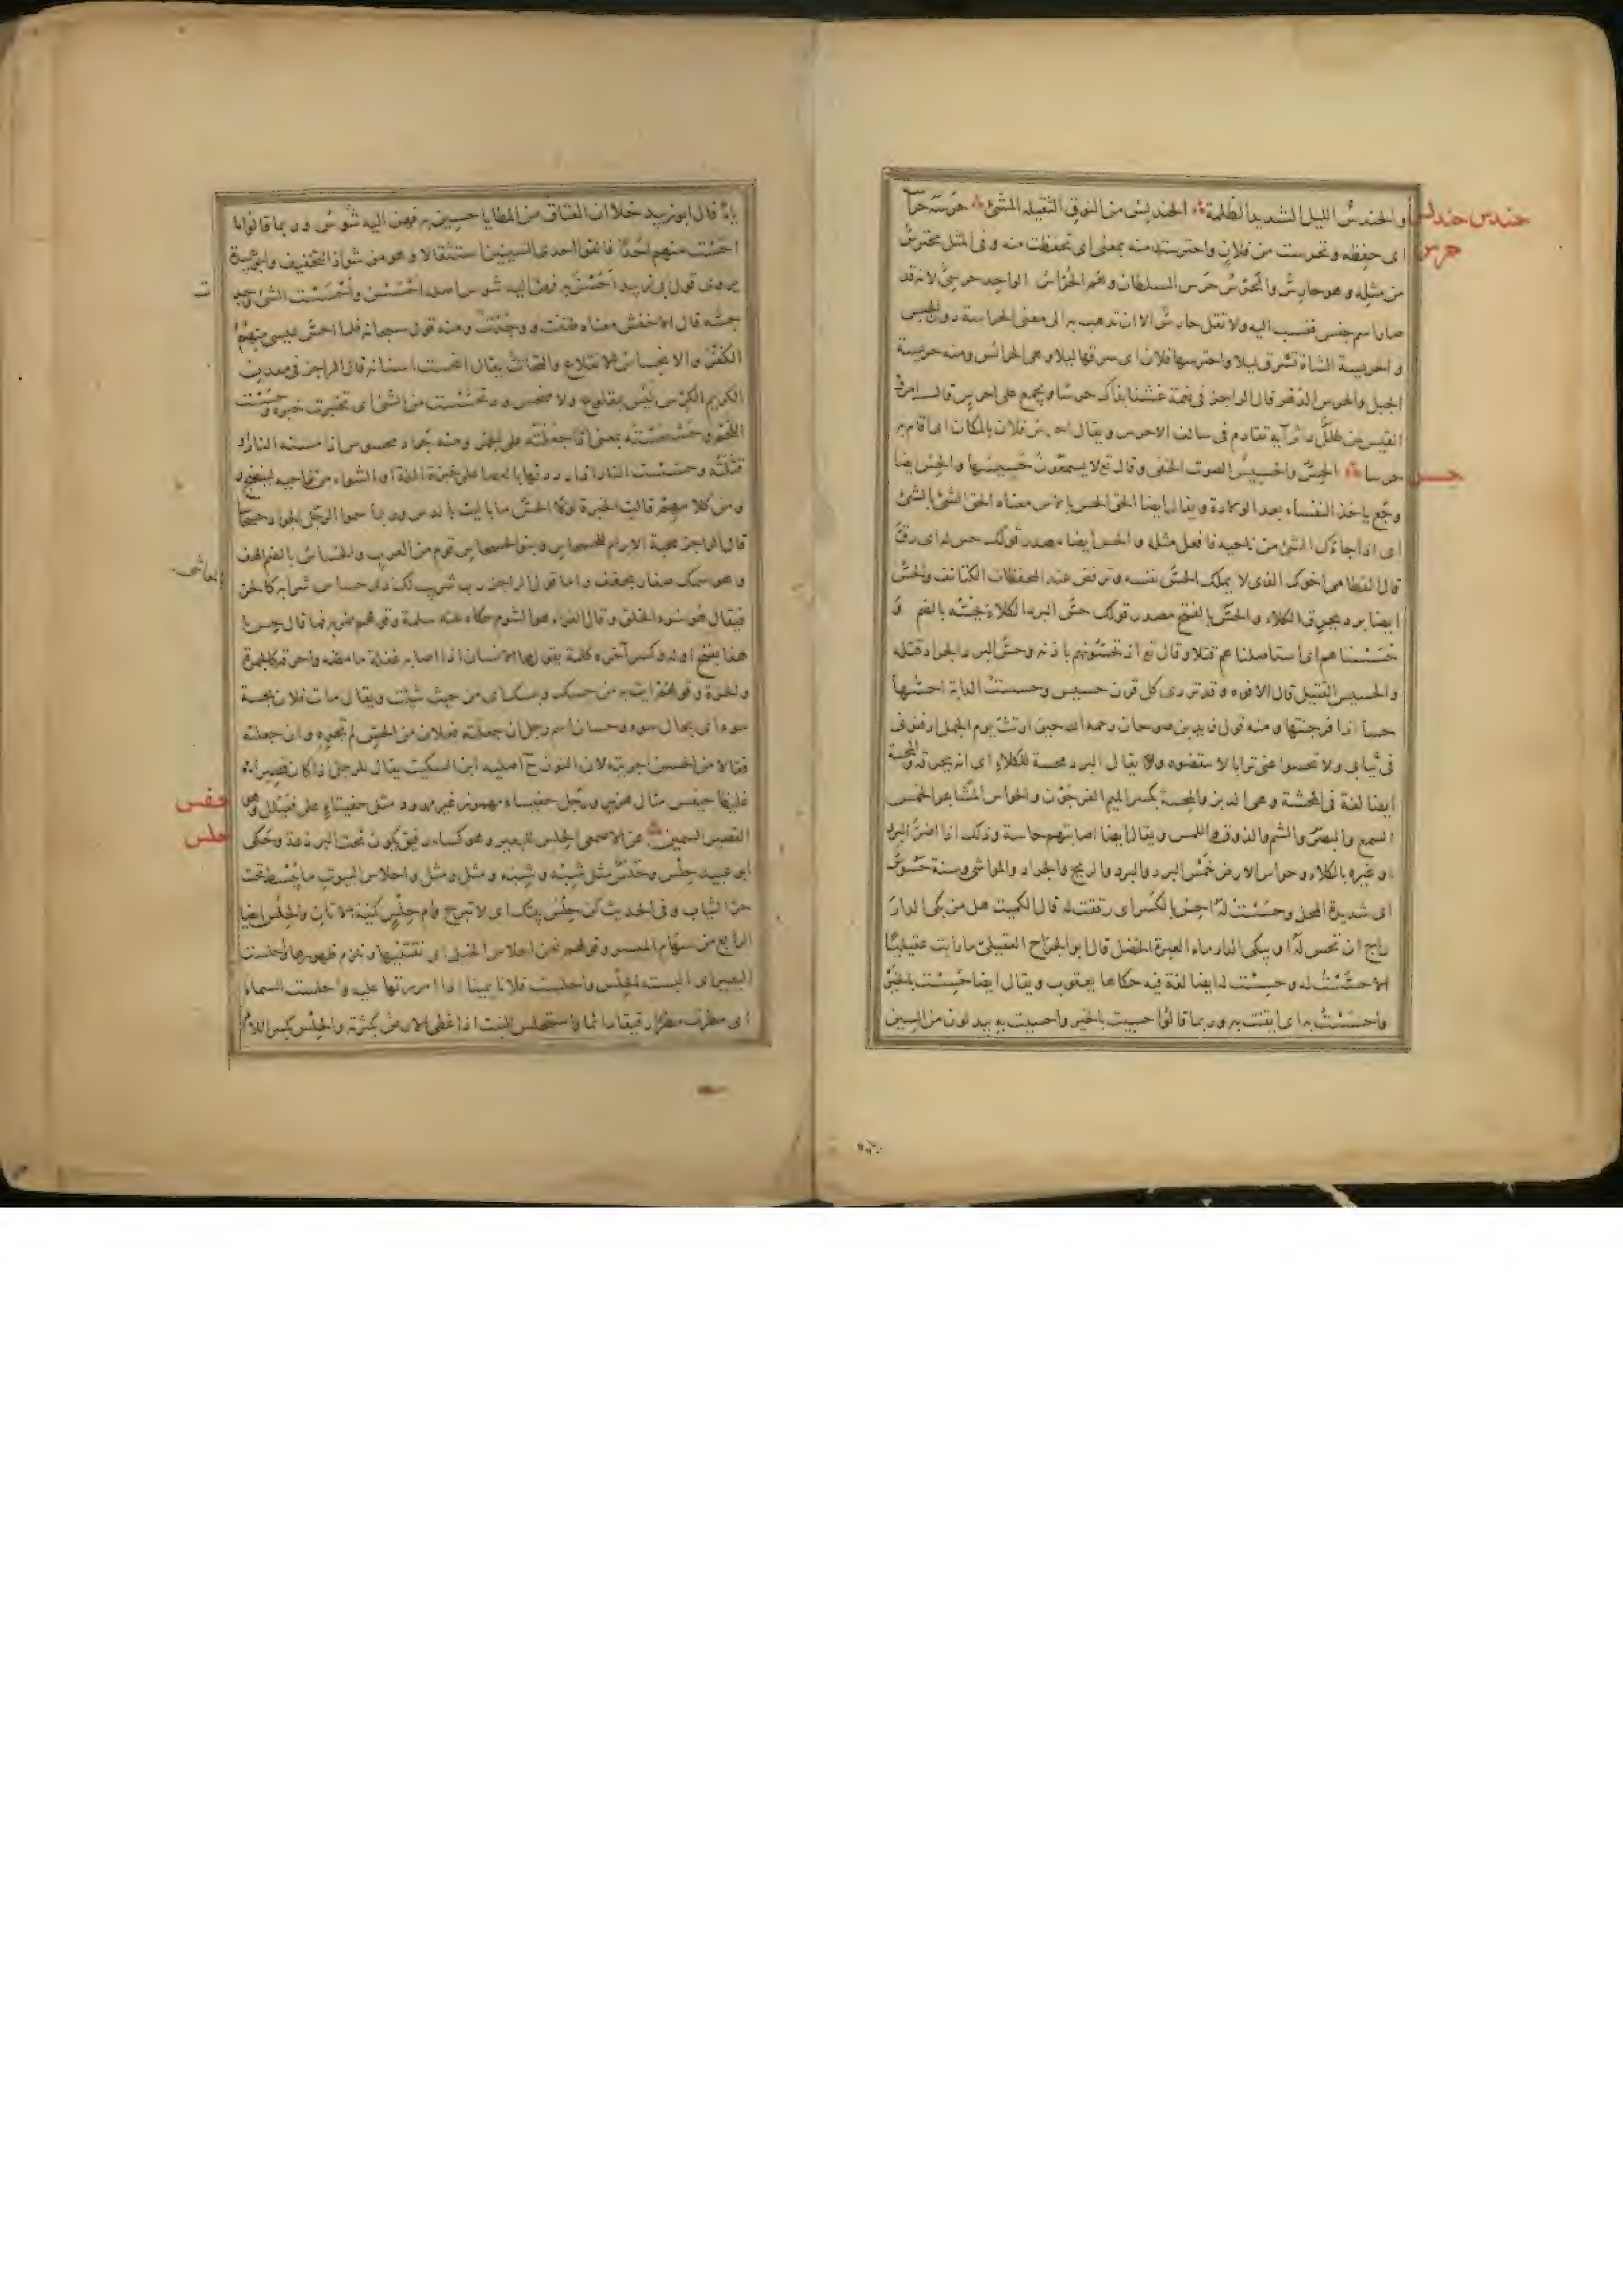 حندس حندلس
والحندسُ الليل الشديد الظلمة الحندلس من النوق الثقيلة المشي حرسه حرا
حرس
اى حفظه وتحرست من فلان واحترست منه بمعنى اى تحفظت منه وفى المثل محترسٌ
من مثله وهو حارس والحرس حرس السلطان وهم الحُرّاس الواحد حرسىّ لانه قد
صار اسم جنس فنسب اليه ولا تقل حارس الا ان تذهب به الى معنى الحراسة دون الجنس
والحريسة الشاة تسرق ليلا واحترسها فلان اى سرقها ليلا وهى الحرائس ومنه حريسة
الجبل والحرس الدهر قال الراجز فى نعمة عشنا بذاك حرسا ويجمع على احرس قال امرؤ
القيس لمن طلل داثر آيه تقادم فى سالف الاحرس ويقال احرس فلان بالمكان اى اقام به
حسس
حرسا الحِسّ والحسيس الصوت الخفى وقال تع لا يسمعون حسيسها والحِس ايضا
وجع ياخذ النفساء بعد الولادة ويقال ايضا الحق الحس بالاس معناه الحق الشئ بالشئ
اى اذا جاءك الشئ من ناحيه فافعل مثله والحس ايضا مصدر قولك حس له اى رق
قال القطامى اخوك الذى لا يملك الحسّ نفسه وترفض عند المحفظات الكتائف والحسّ
ايضا برد يحرق الكلاء والحَسّ بالفتح مصدر قولك حسّ البرد الكلاء يحُسّه بالضم و
حسسناهم اى استاصلناهم قتلا وقال تع اذ تحسّونهم باذنه وحسّ البرد الجراد قتله
والحسيس القتيل قال الافوه وقد تردى كل قرن حسيس وحسست الدابة احسّها
حسا اذا فرجنتها ومنه قول زيد بن صوحان رحمه الله حين ارتث يوم الجمل ادفنونى
فى ثيابى ولا تحسوا عنى ترابا لا تنفضوه ويقال البرد محسة للكلاء اى انه يحرقه والمحسة
ايضا لغة فى المحشة وهى الدبر والمِحسة بكسر الميم الفرجَوْن والحواس المشاعر الخمس
السمع والبصر والشم والذوق واللمس ويقال ايضا اصابتهم حاسة وذلك اذا اضرّ البرد
او غيره بالكلاء وحواس الارض خمسٌ البرد والبَرد والريح والجراد والمواشى وسنة حسوس
اى شديدة المحل وحسست له احِس بالكسر اى رققت له قال الكميت هل من بكى الدار
راج ان تحس له او يبكى الدار ماء العبرة الخضل قال ابو الجراح العقيلى ما رأيت عقيليّا
الا حسست له وحسِست له ايضا لغة فيه حكاها يعقوب ويقال ايضا حسِست بالخبر
واحسست به اى ايقنت به وربما قالوا حسيت بالخبر واحسيت به يبدلون من السين
ياءً قال ابو زبيد خلا ان العتاق من المطايا حسين به فهن اليه شُوسُ وربما قالوا ما
احست منهم احدا فالقوا احدى السينين استثقالا وهو من شواذ التخفيف وابو عبيدة
يروى قول ابى زبيد احسن به فهن اليه شوس اصله احسسن واحسست الشئ وجد
حسّه قال الاخفش معناه ظننت ووجدت ومنه قوله سبحانه فلما احسّ عيسى منهم
الكفر والانحساس الانقلاع والتحاتّ يقال انحست اسنانه قال الراجز فى معدن
الكريم الكِرس ليس بمقلوع ولا منحس وتحسّست من الشئ اى تخبرت خبره وحسست
اللحم وحسحسته بمعنى اذا جعلته على الجمر ومنه جراد محسوس اذا مسته النار او
قتلته وحسست النار اذا رددتها بالعصا على خبزة الملة او الشواء من نواحيه لينضج و
ومن كلامهم قالت الخبزة لولا الحسّ ما باليت بالدس وربما سموا الرجل الجواد حسحاسا
قال الراجز محبة الابرام للحسحاس وبنو الحسحاس قوم من العرب والحُساس بالضم الهف
وهو سمك صغار يجفف واما قول الراجز رب شريب لك ذى حساس شرابه كالحز
فيقال هو سوء الخلق وقال الفراء هو الشوم حكاه عنه سلمة وقولهم ضربه فما قال حس يا
هذا بفتح اوله وكسر آخره كلمة يقولها الانسان اذا اصابه غفلة ما مضه واحرقه كالجمرة
والضربة وقولهم ائت به من حسك وبسك اى من حيث شئت ويقال مات فلان بحسة
سوء اى بحال سوء وحسان اسم رجل ان جعلته فعلان من الحسّ لم تجره وان جعلته
فعّالا من الحسن اجريته لان النون ح اصلية ابن السكيت يقال للرجل اذا كان قصيرا
حفس
غليظا حيفس مثال هزبر ورجل حفيساء مهموز غير ممدود مثل حفيتاء على فعيلل وهو
حلس
القصير السمين عن الاصمعى الحِلس للبعير وهو كساء رقيق يكون تحت البرذعة وحكى
ابو عبيد حِلْس وحَلَس مثل شِبْه وشَبَه ومِثْل ومَثَل واحلاس البيوت ما يبسط تحت
حر الثياب وفى الحديث كن حِلس بيتك اى لا تبرح وام حِلس كنية الاتان والحِلس ايضا
الرابع من سهام الميسر وقولهم نحن احلاس الخيل اى نقتنيها ونلزم ظهورها واحلست
البعير اى البسته الحِلس واحلست فلانا يمينا اذا امررتها عليه واحلست السماء
اى مطرت مطرا رقيقا دائما واستحلس النبت اذا غطى الارض بكثرته والحِلس بكسر اللام